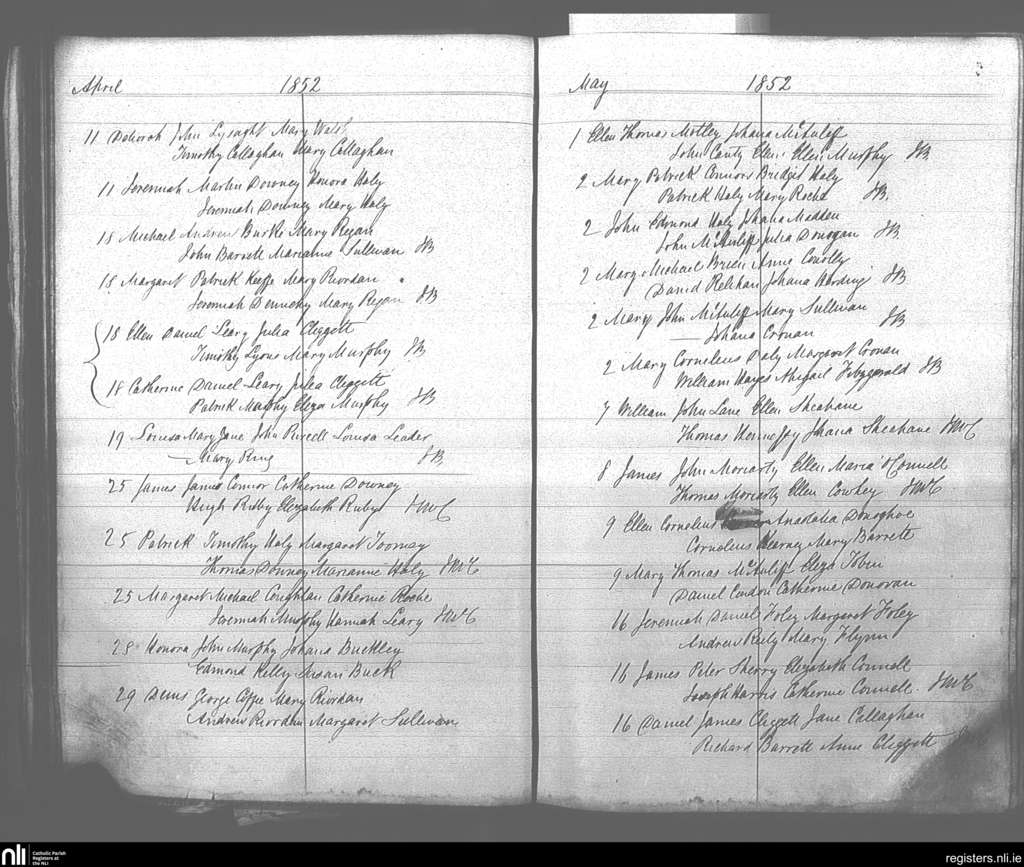 April 1852
11 Deborah John Lysaght Mary Walsh
Timothy Callaghan Mary Callaghan
11 Jeremiah Martin Downey Honora Haly
Jeremiah Downey Mary Haly
18 Michael Andrew Burke Mary Regan
John Barrett Marianne Sullivan JB
18 Margaret Patrick Keeffe Mary Riordan
Jeremiah Dennehy Mary Regan JB
18 Ellen Daniel Leary Julia Cleggett
Timothy Lyons Mary Murphy JB
18 Catherine Daniel Leary Julia Cleggett
Patrick Murphy Eliza Murphy JB
19 Louisa Mary Jane John Purcell Louisa Leader
— Mary Ring JB
25 James James Connor Catherine Downey
Hugh Ruby Elizabeth Ruby JMC
25 Patrick Timothy Haly Margaret Toomey
Thomas Downey Marianne Haly JMC
25 Margaret Michael Coughlan Catherine Roche
Jeremiah Murphy Hannah Leary JMC
28 Honora John Murphy Johana Buckley
Edmond Kelly Susan Buck
29 Denis George Coffee Mary Riordan
Andrew Riordan Margaret Sullivan
May 1852
1 Ellen Thomas Motley Johana McAuliff
John Canty Ellen Ellen Murphy JB
2 Mary Patrick Connors Bridget Haly
Patrick Haly Mary Roche JB
2 John Edmond Haly Johana Madden
John McAuliff Julia Donegan JB
2 Margt Michael Brien Anne Connolly
David Relehan Johana Harding JB
2 Mary John McAuliff Mary Sullivan
— Johana Cronan JB
2 Mary Cornelius Daly Margaret Cronan
William Hayes Abigail Fitzgerald JB
7 William John Lane Ellen Sheahane
Thomas Hennessy Johana Sheahane JMC
8 James John Moriarty Ellen Maria O'Connell
Thomas Moriarty Ellen Cowhey JMC
9 Ellen Cornelius Anastatia Donoghoe
Cornelius Kearney Mary Barrett
9 Mary Thomas McAuliff Eliza Tobin
Daniel Condon Catherine Donovan
16 Jeremiah Daniel Foley Margaret Foley
Andrew Reily Mary Flynn
16 James Peter Sherry Elizabeth Connell
Joseph Harris Catherine Connell JMC
16 Daniel James Cleggett Jane Callaghan
Richard Barrett Anne Cleggett
nli Catholic Parish Registers at the NLI
registers.nli.ie